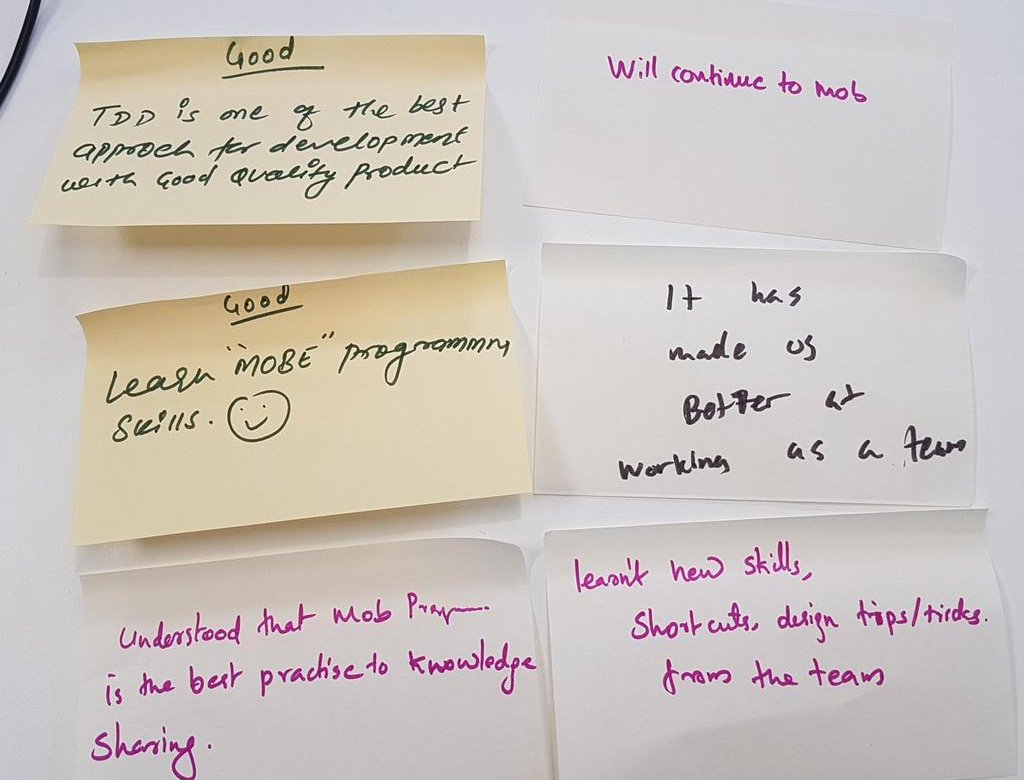 Good
TDD is one of the best
approch for development
with Good Quality Product
Will continue to mob
Good
Learn "MOBE" programming
skills.
It has
made us
Better at
working as a team
Understood that Mob
is the best practise to knowledge
sharing.
learn't new skills,
Shortcuts, design tips/tricks.
from the team